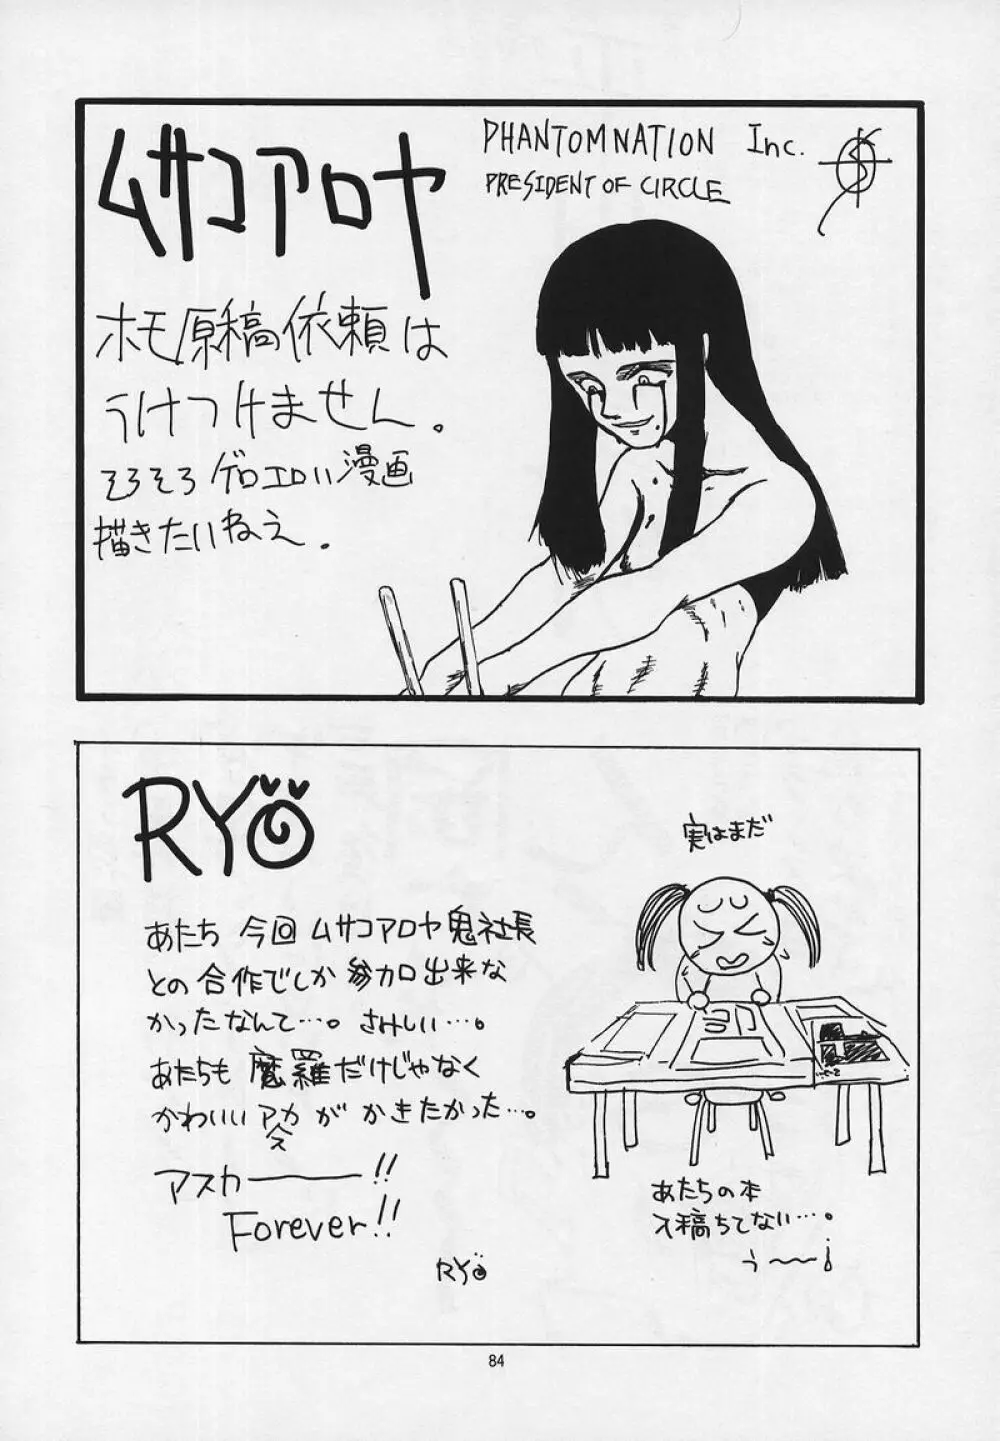 ムサコアロヤ
PHANTOMNATION Inc.
PRESIDENT OF CIRCLE
ホモ原稿依頼は
うけつけません。
そろそろゲロエロい漫画
描きたいねえ。
RYO
実はまだ
あたち 今回 ムサコアロヤ鬼社長
との合作でしか参加出来な
かったなんて…。さみしい…。
あたちも魔羅だけじゃなく
かわいいアカが かきたかった…。
ス
アスカー!!
Forever!!
RYO
あたちの本
入稿ちてない…。
う〜〜!
84